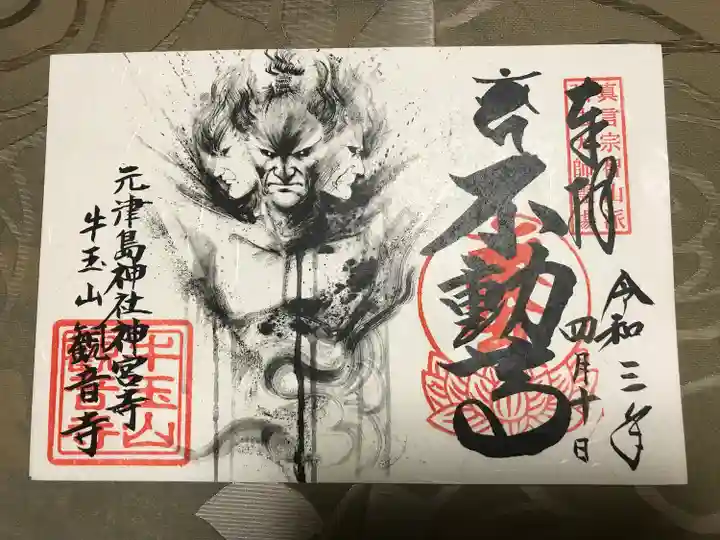 奉拝
真言宗智山派
令和三年
四月十日
不動
元津島神社神宮寺
牛玉山
観音寺
牛玉山
観音寺